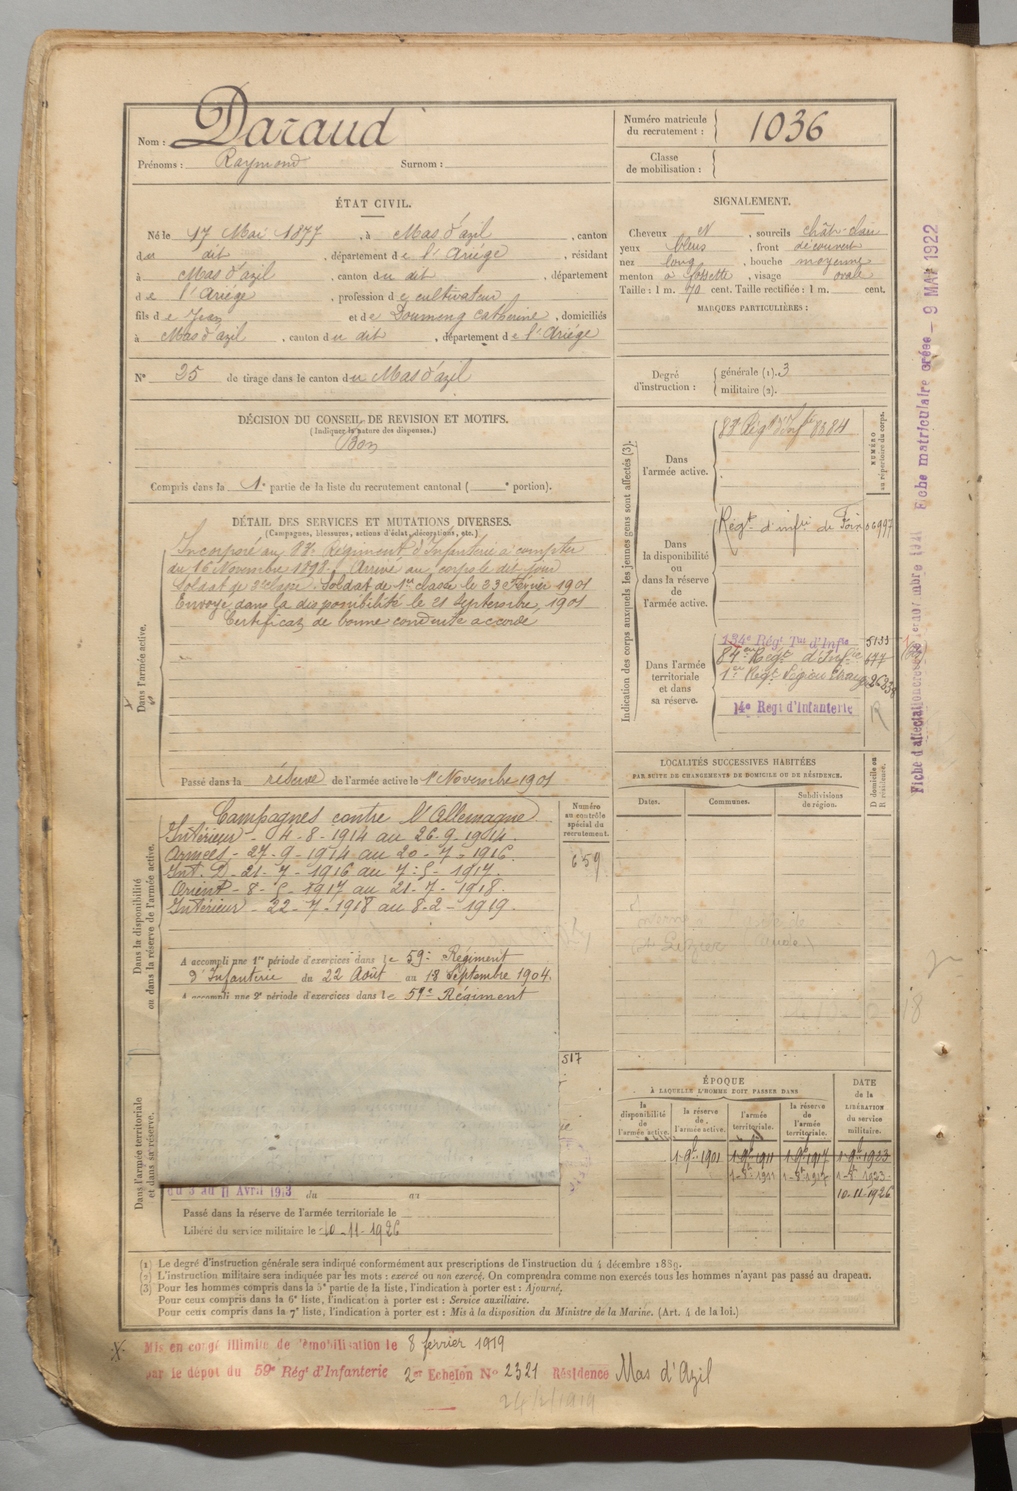 Nom : Daraud
Prénoms : Raymond Surnom :
Numéro matricule
du recrutement : 1036
Classe
de mobilisation :
ÉTAT CIVIL.
Né le 17 Mai 1877, à Mas d'azil, canton
du dit, département de l'Ariége, résidant
à Mas d'azil, canton du dit, département
de l'Ariége, profession de cultivateur
fils de Jean et de Doumeng Catherine, domiciliés
à Mas d'azil, canton du dit, département de l'Ariége
N° 25 de tirage dans le canton du Mas d'azil
SIGNALEMENT.
Cheveux N, sourcils chât-clair
yeux bleus, front découvert
nez long, bouche moyenne
menton à fossette, visage ovale
Taille : 1 m. 70 cent. Taille rectifiée : 1 m. cent.
MARQUES PARTICULIÈRES :
Degré
d'instruction :
générale (1). 3
militaire (2).
DÉCISION DU CONSEIL DE REVISION ET MOTIFS.
(Indiquer la nature des dispenses.)
Bon
Compris dans la 1e partie de la liste du recrutement cantonal ( e portion).
DÉTAIL DES SERVICES ET MUTATIONS DIVERSES.
(Campagnes, blessures, actions d'éclat, décorations, etc.)
Dans l'armée active.
Incorporé au 83e Régiment d'Infanterie à compter
du 16 Novembre 1898. Arrivé au corps le dit jour
Soldat de 2e classe. Soldat de 1re classe le 23 Février 1901
Envoyé dans la disponibilité le 21 Septembre 1901
Certificat de bonne conduite accordé
Passé dans la réserve de l'armée active le 1er Novembre 1901
Indication des corps auxquels les jeunes gens sont affectés (3).
NUMÉRO
au répertoire du corps.
Dans
l'armée active.
83e Régt d'Infie 8384
Dans
la disponibilité
ou
dans la réserve
de
l'armée active.
Régt d'infie de Foix 06997
Dans l'armée
territoriale
et dans
sa réserve.
134e Régt Tal d'Infie 5133
84eme Régt d'Infie 677
1er Régt Légion Etrang 26838
14e Regt d'Infanterie R
Dans la disponibilité
ou dans la réserve de l'armée active.
Campagnes contre l'Allemagne
Intérieur - 4-8-1914 au 26-9-1914.
Armées - 27-9-1914 au 20-7-1916.
Int. D - 21-7-1916 au 7-5-1917.
Orient - 8-5-1917 au 21-7-1918.
Intérieur - 22-7-1918 au 8-2-1919.
Numéro
au contrôle
spécial du
recrutement.
659
A accompli une 1re période d'exercices dans le 59e Régiment
d'Infanterie du 22 Août au 18 Septembre 1904.
A accompli une 2e période d'exercices dans le 59e Régiment
517
LOCALITÉS SUCCESSIVES HABITÉES
PAR SUITE DE CHANGEMENTS DE DOMICILE OU DE RÉSIDENCE.
D domicile ou
R résidence.
Dates.
Communes.
Subdivisions
de région.
Dans l'armée territoriale
et dans sa réserve.
au 11 Avril 1913 du au
Passé dans la réserve de l'armée territoriale le
Libéré du service militaire le 10-11-1926
ÉPOQUE
À LAQUELLE L'HOMME DOIT PASSER DANS
DATE
de la
LIBÉRATION
du service
militaire.
la
disponibilité
de
l'armée active.
la réserve
de
l'armée active.
l'armée
territoriale.
la réserve
de
l'armée
territoriale.
1-9bre 1901 1-9bre 1911 1-9bre 1917 1-9bre 1923
1-8bre 1911 1-8bre 1917 1-8bre 1923
10-11-1926
(1) Le degré d'instruction générale sera indiqué conformément aux prescriptions de l'instruction du 4 décembre 1889.
(2) L'instruction militaire sera indiquée par les mots : exercé ou non exercé. On comprendra comme non exercés tous les hommes n'ayant pas passé au drapeau.
(3) Pour les hommes compris dans la 5e partie de la liste, l'indication à porter est : Ajourné.
Pour ceux compris dans la 6e liste, l'indication à porter est : Service auxiliaire.
Pour ceux compris dans la 7e liste, l'indication à porter est : Mis à la disposition du Ministre de la Marine. (Art. 4 de la loi.)
Mis en congé illimité de démobilisation le 8 février 1919
par le dépot du 59e Régt d'Infanterie 2er Echelon N° 2321 Résidence Mas d'Azil
24/2/1919
Fiche matriculaire créée - 9 MAI 1922